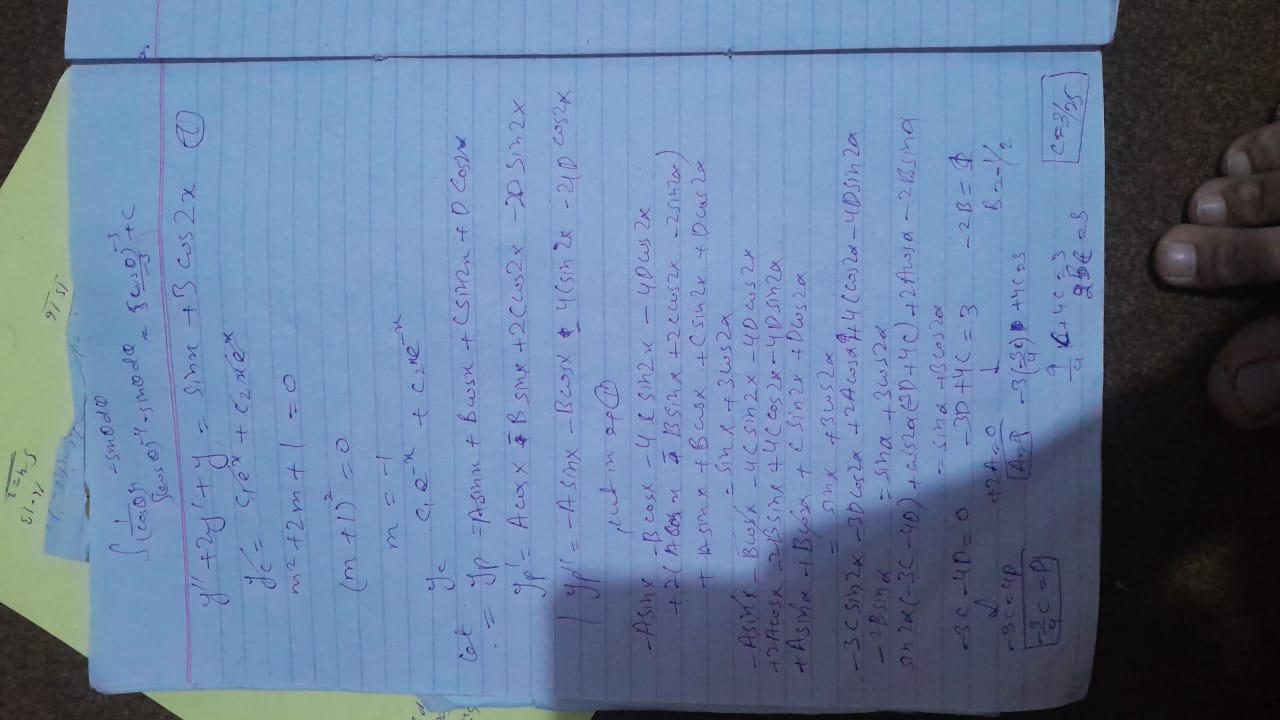 5-4=2
14-13
15 16
∫ 1/(cosθ)⁴ -sinθdθ
∫(cosθ)⁻⁴ -sinθdθ = (cosθ)⁻³/-3 + C
y'' + 2y' + y = sinx + 3 cos2x ①
yc = c₁eˣ + c₂xeˣ
m² + 2m + 1 = 0
(m + 1)² = 0
m = -1
yc c₁e⁻ˣ + c₂xe⁻ˣ
Let yp = Asinx + Bcosx + Csin2x + D Cos2x
yp' = Acosx - B sinx + 2Ccos2x - 2D Sin2x
yp'' = -A sinx - Bcosx - 4Csin2x - 4D cos2x
put in eq ①
-Asinx -Bcosx -4C sin2x - 4Dcos2x
+2(Acosx - Bsinx +2ccos2x -2sin2x)
+ Asinx + Bcosx + Csin2x + Dcos2x
= sinx + 3cos2x
-Asinx - Bcosx -4C sin2x -4D cos2x
+2Acosx -2Bsinx +4Ccos2x -4Dsin2x
+Asinx + Bcosx + Csin2x + Dcos2x
= sinx +3cos2x
-3Csin2x -3Dcos2x +2Acosx +4Ccos2x -4Dsin2x
-2Bsinx = sinx +3cos2x
sin2x(-3C-4D) + cos2x(-3D+4C) +2Acosx -2Bsinx
= sinx +3cos2x
-3C-4D=0 -3D+4C=3 -2B=1
-3C=4D +2A=0 ↓ B=-1/2
-3/4 C = D A=0 -3(-3/4 C) +4C=3
9/4 C+4C=3 C=3/25
25C=3